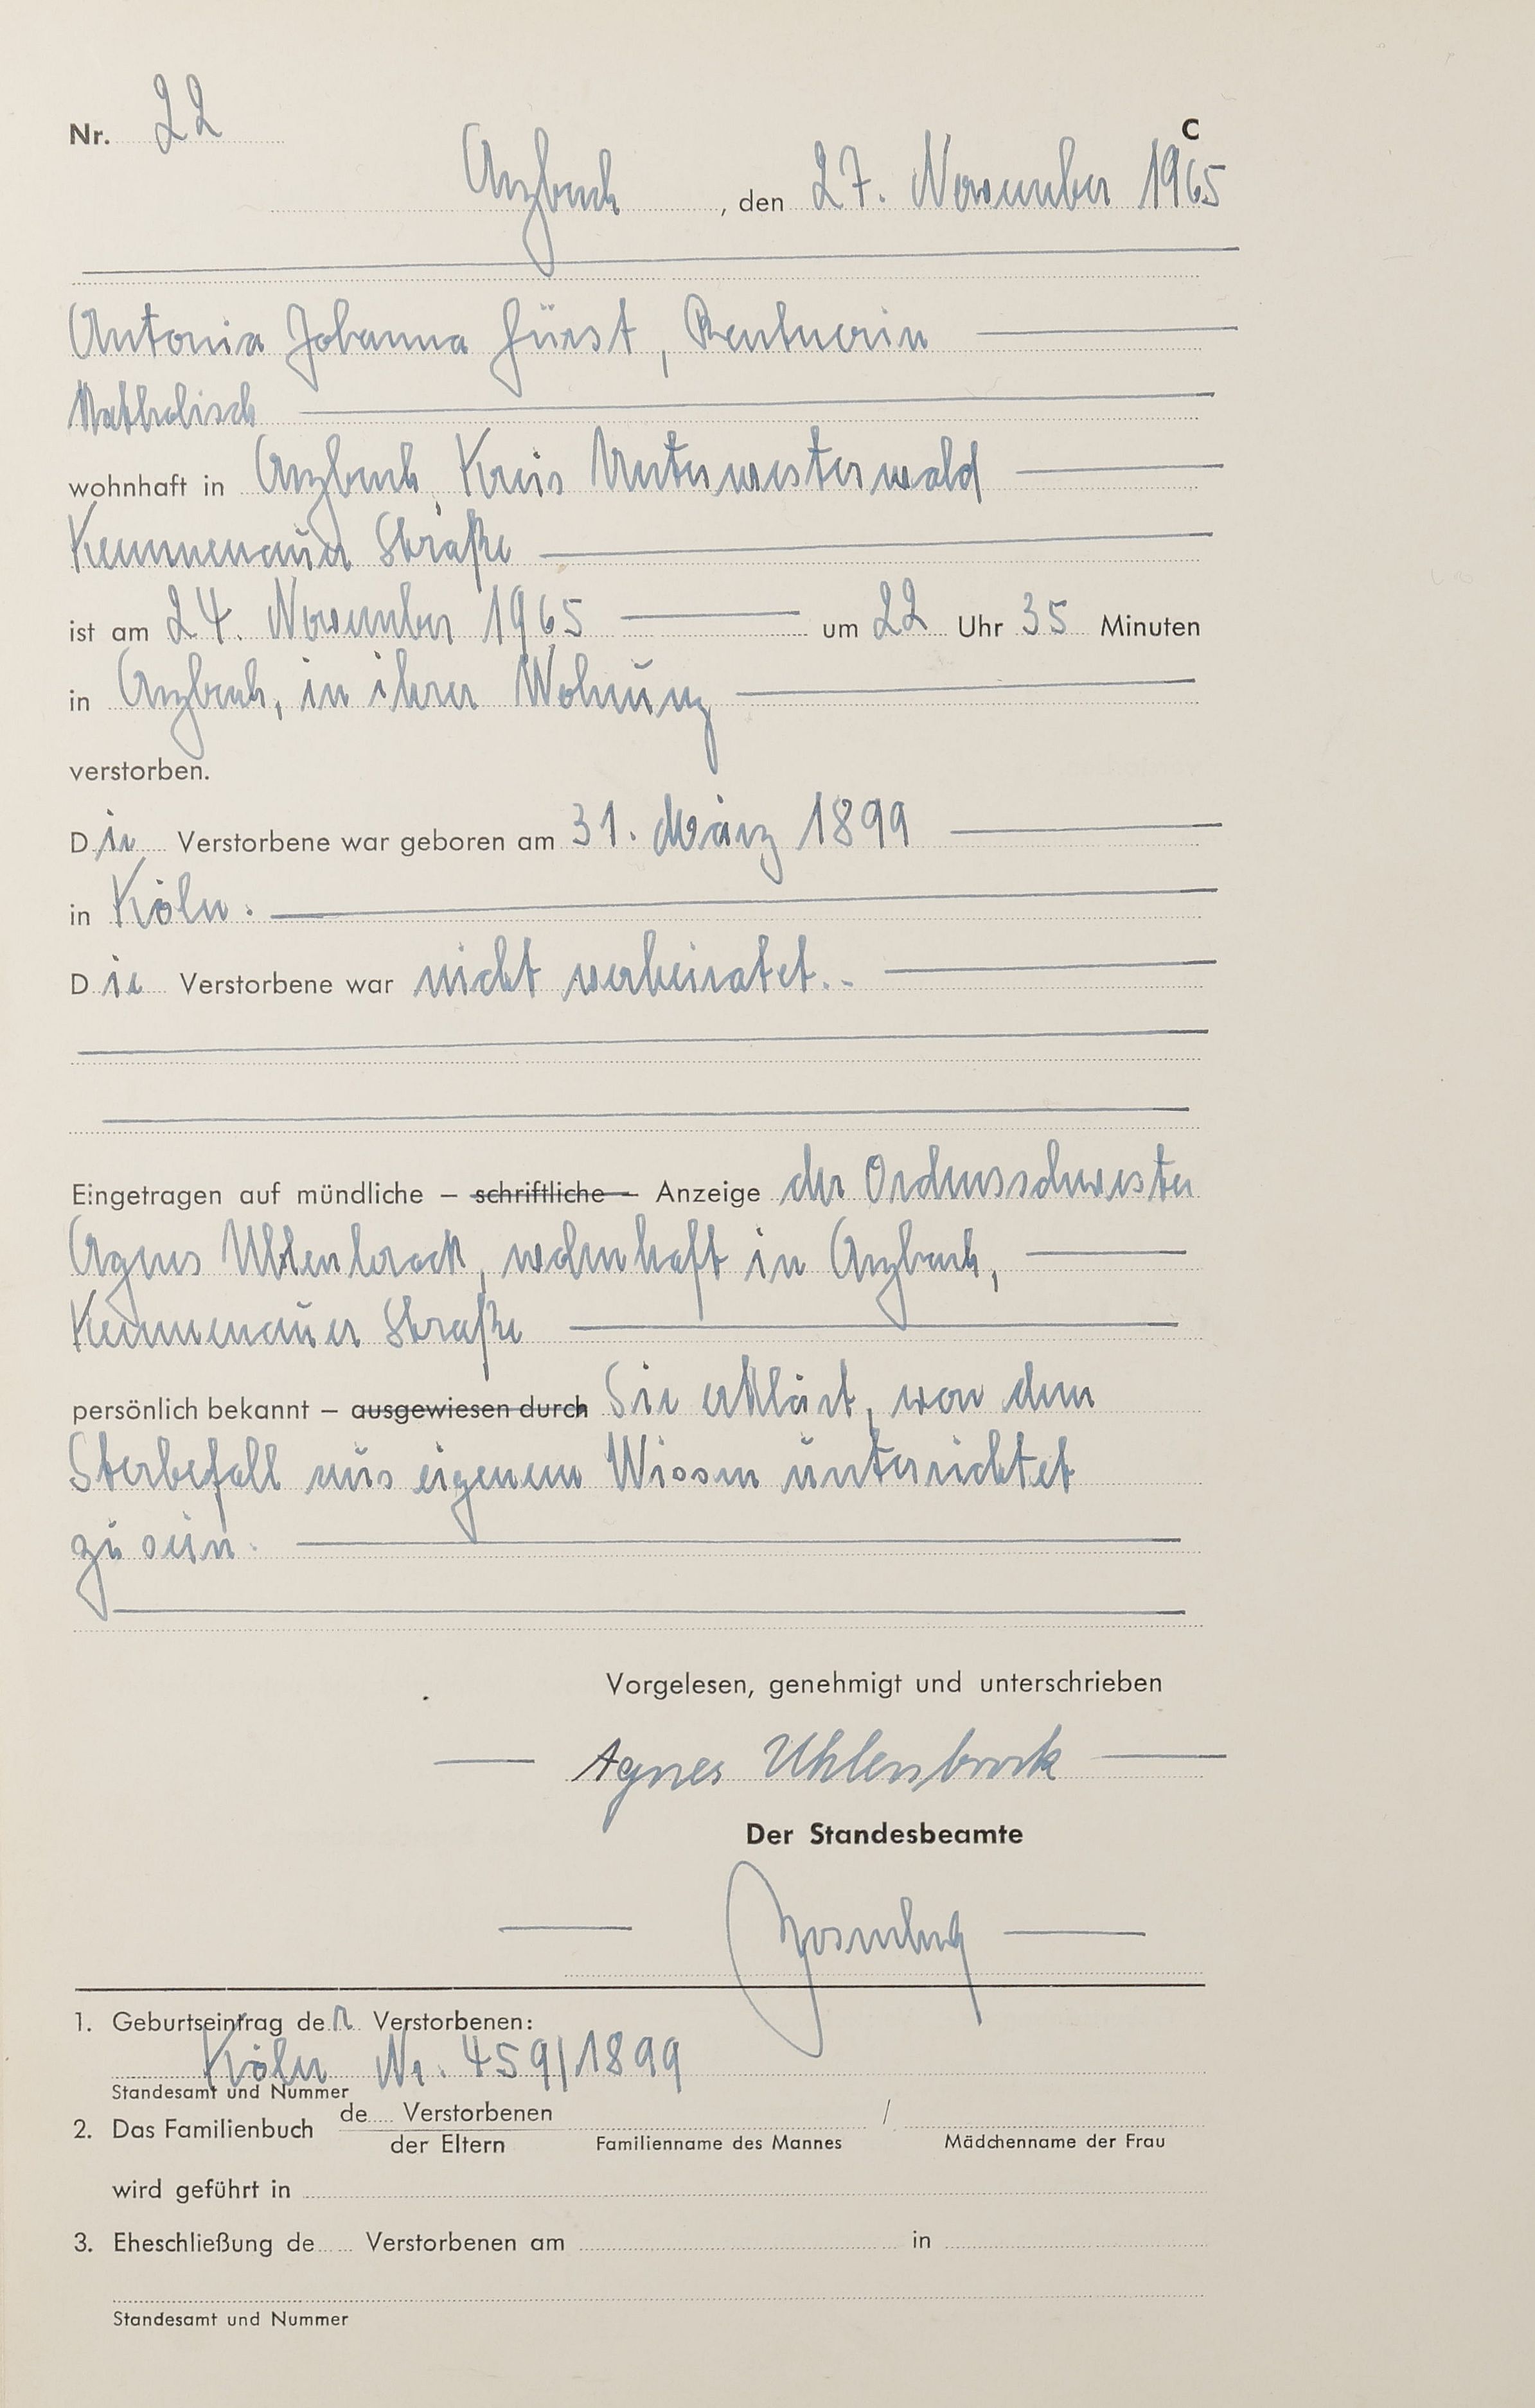 Nr. 22
C
Arzbach, den 27. November 1965
Antonia Johanna Fürst, Rentnerin
Katholisch
wohnhaft in Arzbach, Kreis Unterwesterwald
Kemmenauer Straße
ist am 24. November 1965 um 22 Uhr 35 Minuten
in Arzbach, in ihrer Wohnung
verstorben.
Die Verstorbene war geboren am 31. März 1899
in Köln.
Die Verstorbene war nicht verheiratet.
Eingetragen auf mündliche – schriftliche – Anzeige der Ordensschwester
Agnes Uhlenbrock, wohnhaft in Arzbach,
Kemmenauer Straße
persönlich bekannt – ausgewiesen durch Sie erklärt, von dem
Sterbefall aus eigenem Wissen unterrichtet
zu sein.
Vorgelesen, genehmigt und unterschrieben
Agnes Uhlenbrock
Der Standesbeamte
1. Geburtseintrag der Verstorbenen:
Köln Nr. 459/1899
Standesamt und Nummer
2. Das Familienbuch de Verstorbenen /
der Eltern Familienname des Mannes Mädchenname der Frau
wird geführt in
3. Eheschließung de Verstorbenen am in
Standesamt und Nummer